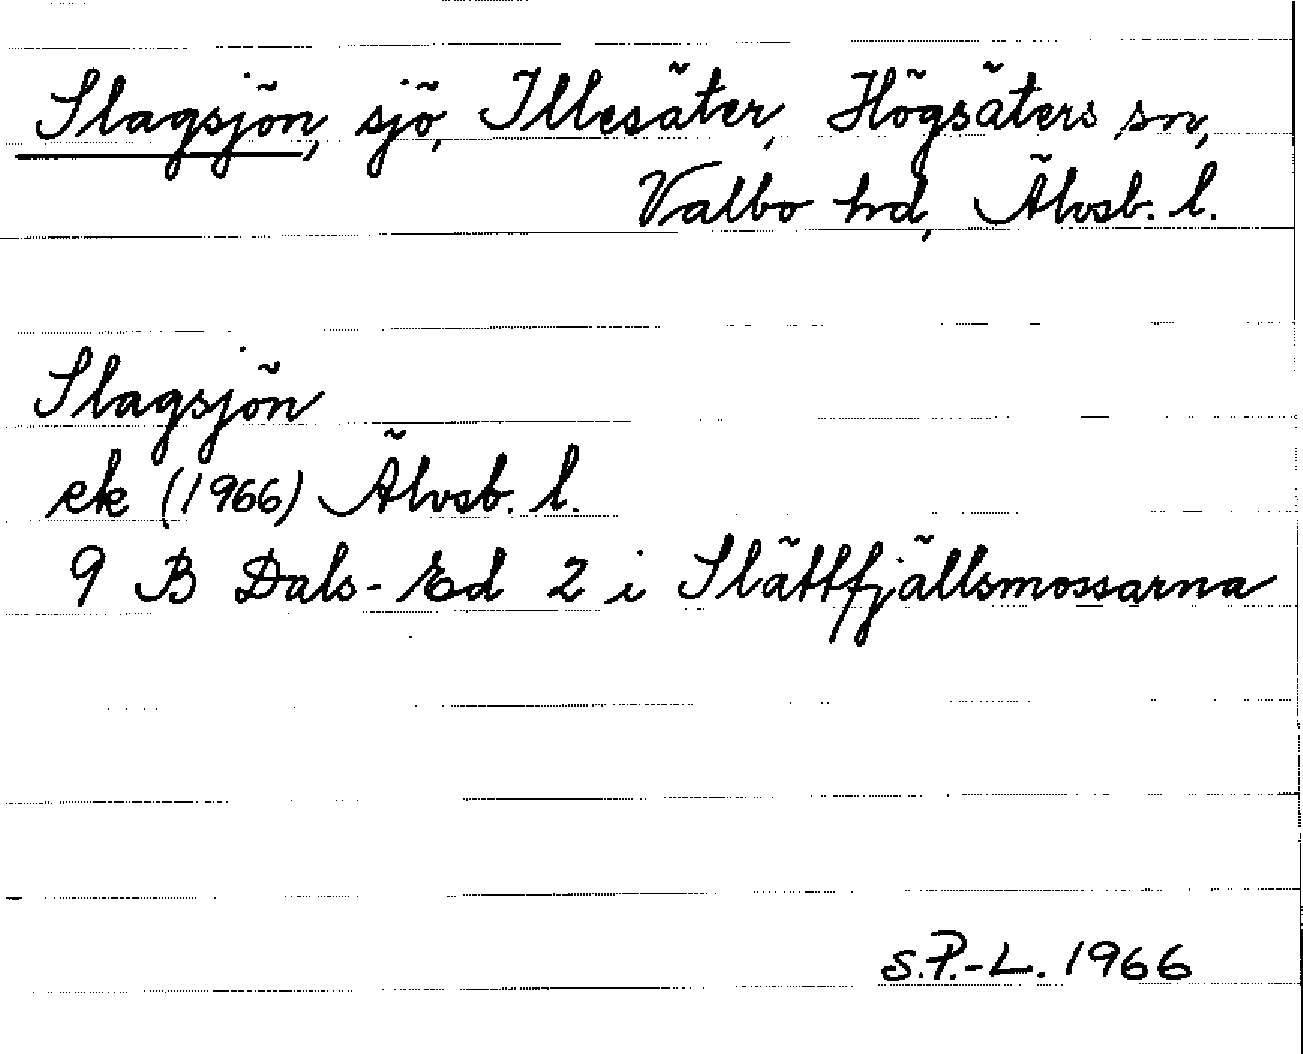 Slagsjön, sjö, Illesäter, Högsäters sn,
Valbo hd, Älvsb. l.
Slagsjön
ek (1966) Älvsb. l.
9 B Dals-Ed 2 i Slättfjällsmossarna
S.P.-L. 1966